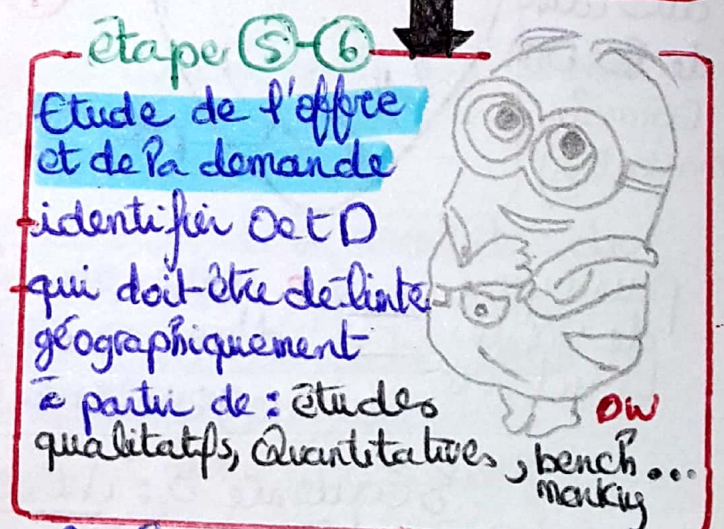 étape 5-6
Etude de l'offre
et de la demande
identifier O et D
qui doit-être délimité
géographiquement
à partir de : études
ou
qualitatifs, Quantitatives, bench...
marking